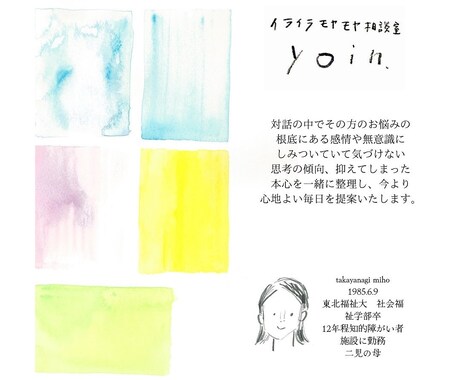 イライラモヤモヤ相談室
yoin.
対話の中でその方のお悩みの
根底にある感情や無意識に
しみついていて気づけない
思考の傾向、抑えてしまった
本心を一緒に整理し、今より
心地よい毎日を提案いたします。
takayanagi miho
1985.6.9
東北福祉大 社会福
祉学部卒
12年程知的障がい者
施設に勤務
二児の母